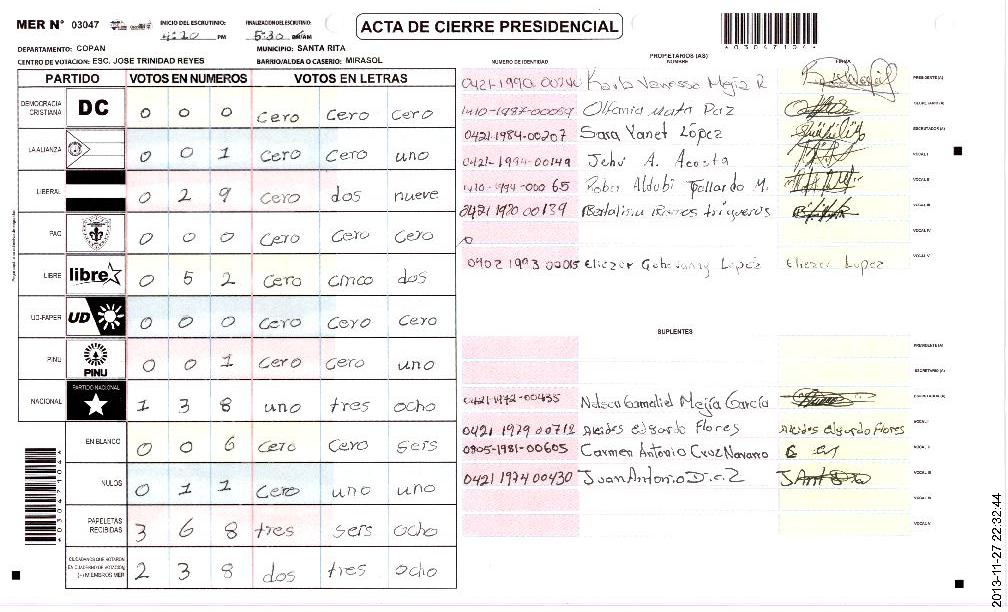 MER N° 03047 INICIO DEL ESCRUTINIO: 4:20 PM FINALIZACION DEL ESCRUTINIO: 5:30 AM/AM
ACTA DE CIERRE PRESIDENCIAL
*03047104*
DEPARTAMENTO: COPAN MUNICIPIO: SANTA RITA
CENTRO DE VOTACION: ESC. JOSE TRINIDAD REYES BARRIO/ALDEA O CASERIO: MIRASOL
PARTIDO VOTOS EN NUMEROS VOTOS EN LETRAS
DEMOCRACIA CRISTIANA DC 0 0 0 cero cero cero
LA ALIANZA 0 0 1 cero cero uno
LIBERAL 0 2 9 cero dos nueve
PAC 0 0 0 cero cero cero
LIBRE libre 0 5 2 cero cinco dos
UD-FAPER UD 0 0 0 cero cero cero
PINU PINU 0 0 1 cero cero uno
NACIONAL PARTIDO NACIONAL 1 3 8 uno tres ocho
EN BLANCO 0 0 6 cero cero seis
NULOS 0 1 1 cero uno uno
PAPELETAS RECIBIDAS 3 6 8 tres seis ocho
CIUDADANOS QUE VOTARON EN CUADERNO DE VOTACION (+) MIEMBROS MER 2 3 8 dos tres ocho
*03047104*
PROPIETARIOS (AS)
NUMERO DE IDENTIDAD NOMBRE FIRMA
Karla Vanessa Mejía R PRESIDENTE(A)
Mata Paz SECRETARIO(A)
0421-1984-00207 Sara Yanet López ESCRUTADOR(A)
0421-1994-00149 A. Acosta VOCAL I
1410-1994-000 65 M. VOCAL II
0421 1970 00139 VOCAL III
VOCAL IV
Eliezer López Eliezer Lopez VOCAL V
SUPLENTES
PRESIDENTE(A)
SECRETARIO(A)
0421-1972-00435 Nelson Gamaliel Mejía García ESCRUTADOR(A)
0421 1979 00712 Alcides Edgardo Flores Alcides Edgardo Flores VOCAL I
0805-1981-00605 Carmen Antonio Cruz Navarro VOCAL II
0421 1974 00430 Juan Antonio VOCAL III
VOCAL IV
VOCAL V
2013-11-27 22:32:44